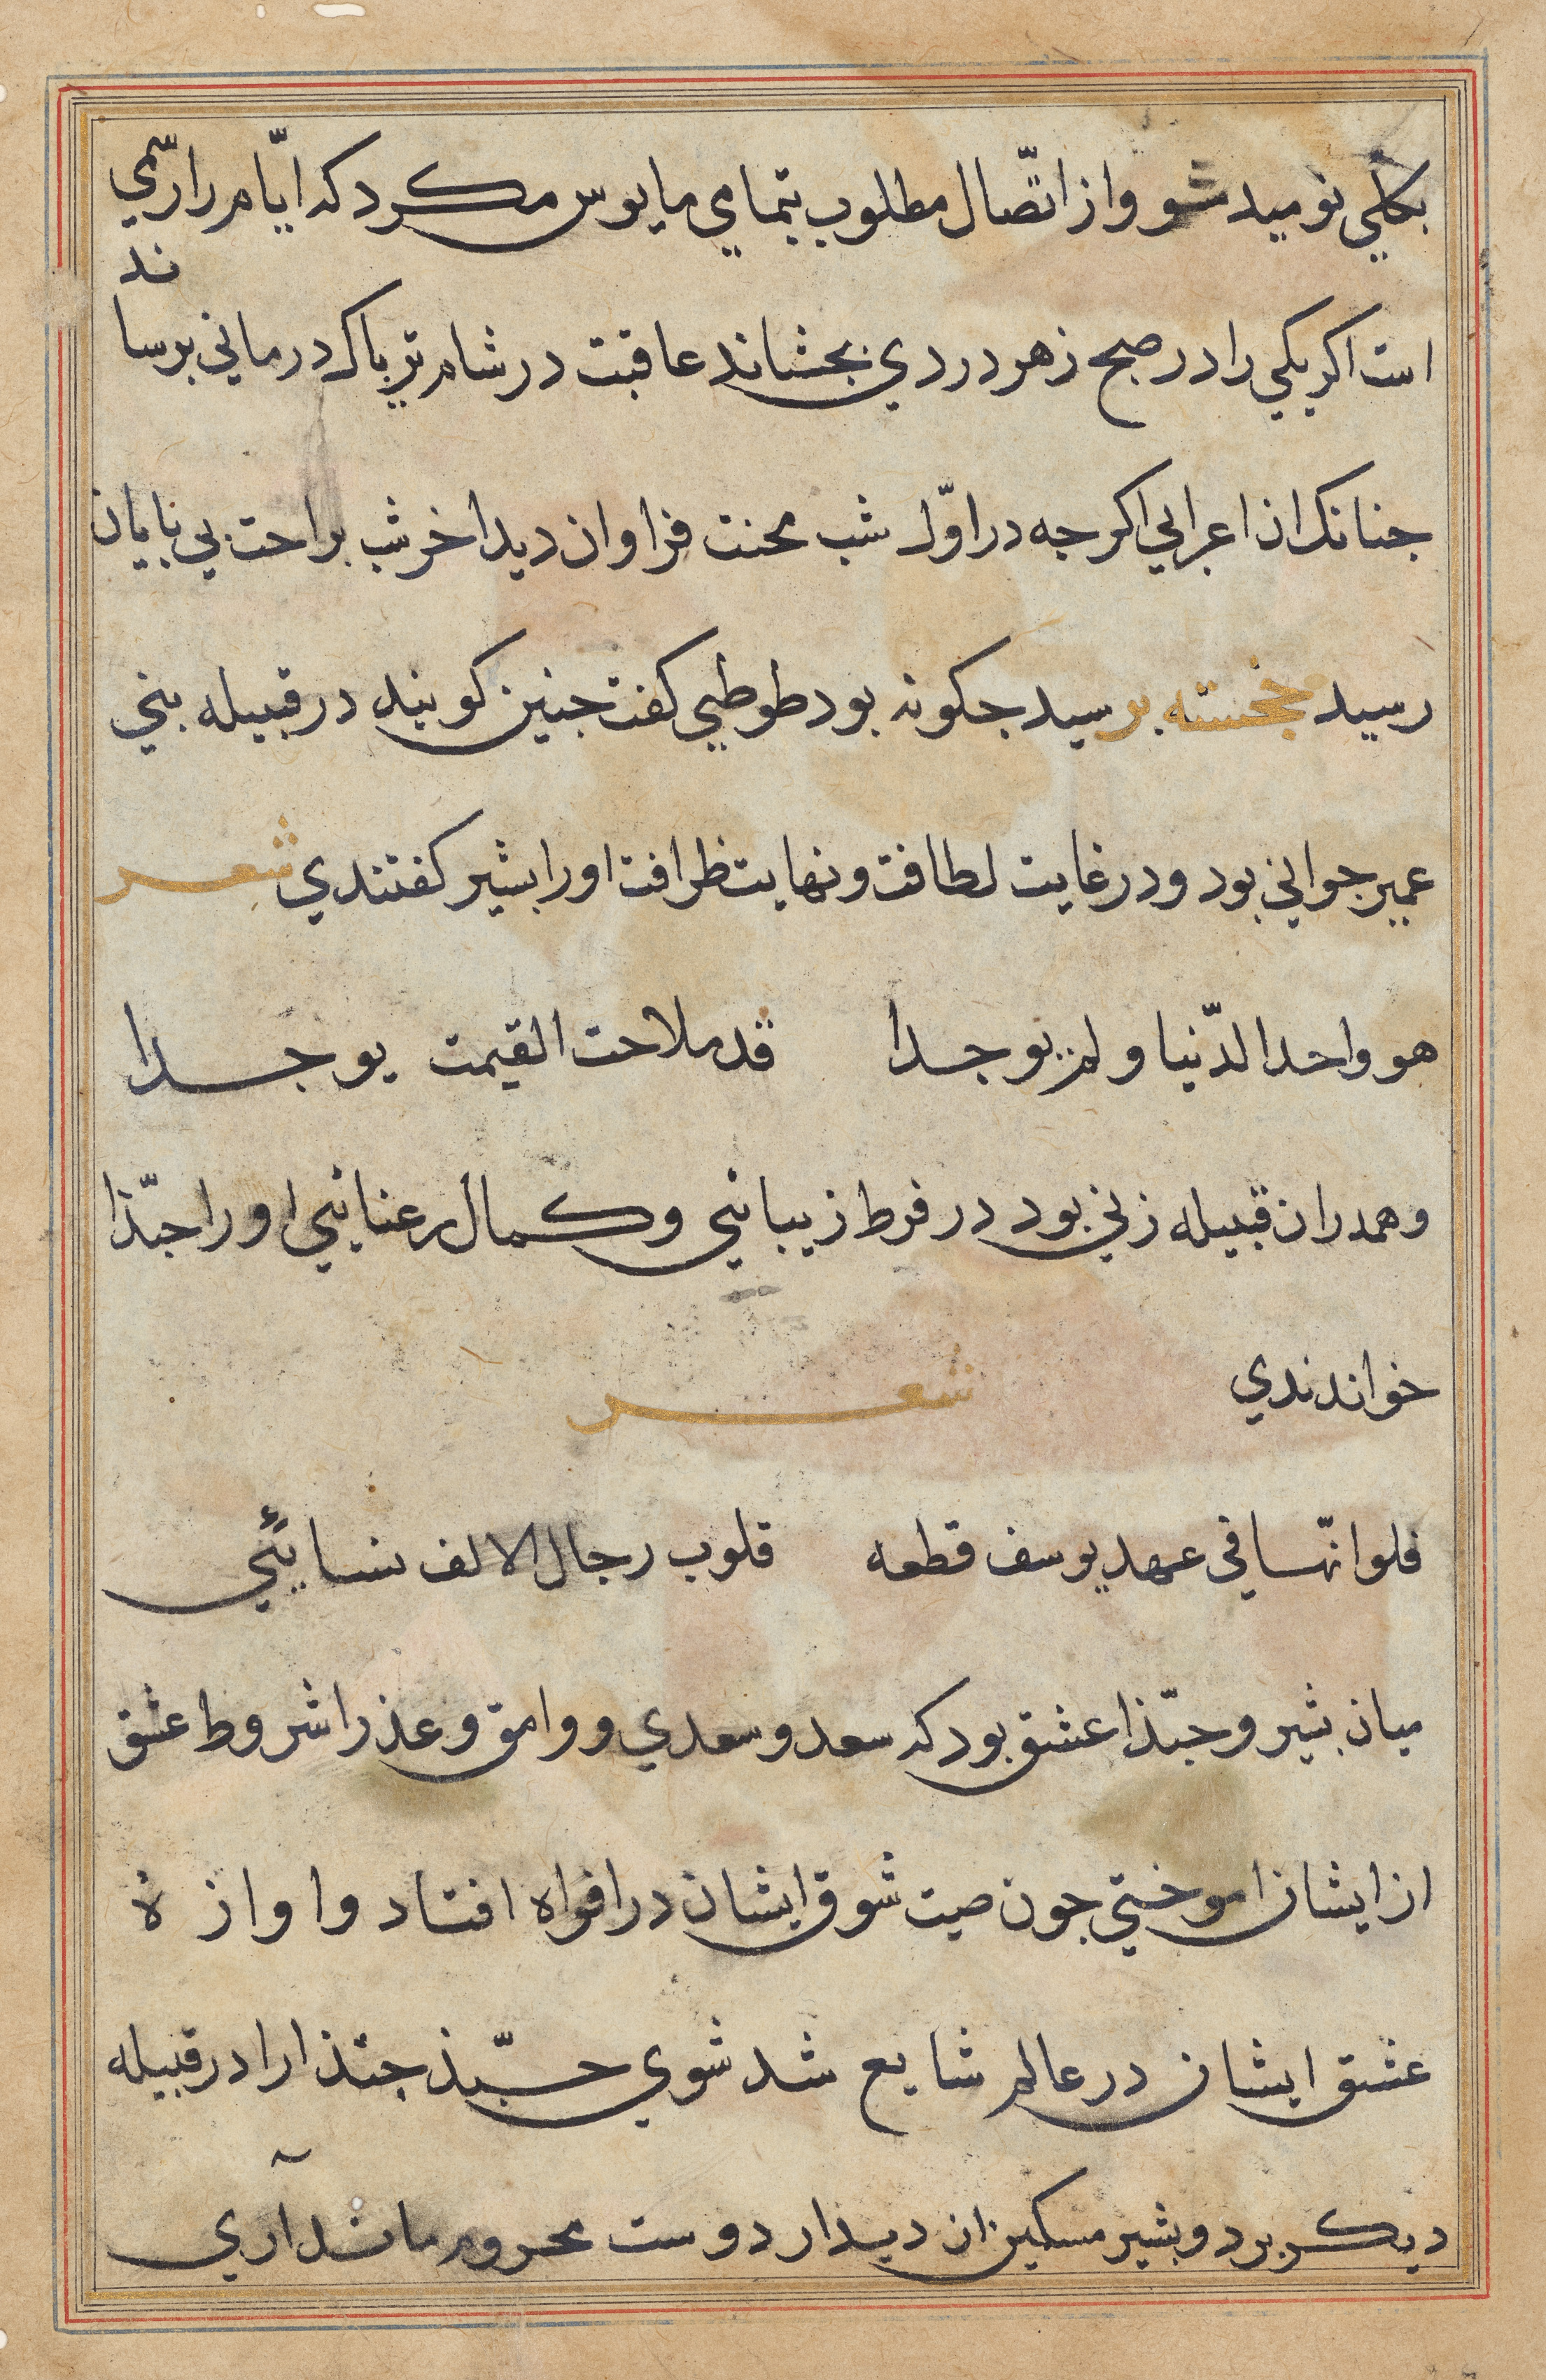 بكلي نوميد مشو و از اتّصال مطلوب بتمامي مايوس مكرد كه ايّام را رسّمي
است اكر يكي را در صبح زهر دردي بجشاند عاقبت در شام ترياك درماني برساند
جنانك ان اعرابي اكرجه در اوّل شب محنت فراوان ديد اخر شب براحت بي بايان
رسيد مخجسته برسيد جكونه بود طوطي كفت جنين كويند در قبيله بني
عمير جواني بود ودر غايت لطافت و نهايت ظرافت او را بشير كفتندي شعر
هو واحد الدّنيا و لم يوجدا قد ملاحت القيمت يوجدا
و همدران قبيله زني بود در فرط زيبائي و كمال رعنائي او را جبّذا
خواندندي شعر
فلوا نّها في عهد يوسف قطعه قلوب رجال الالف نسائي
ميان بشير و جبّذا عشق بود كه سعد و سعدي و وامق و عذرا شروط عشق
از ايشان اموختي جون صيت شوق ايشان در افواه افتاد و اوازۀ
عشق ايشان در عالم شايع شد شوي حبّذ جنذا را در قبيله
ديكر برد و بشير مسكين ان ديدار دوست محروم ماند آري